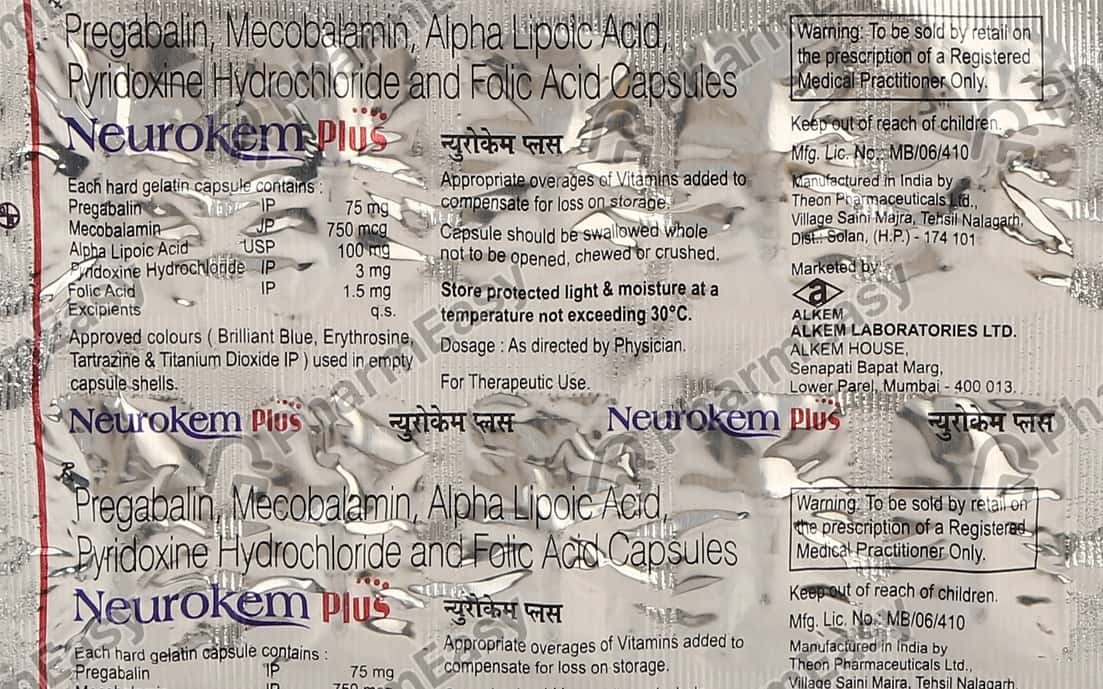 Pregabalin, Mecobalamin, Alpha Lipoic Acid,
Pyridoxine Hydrochloride and Folic Acid Capsules
Neurokem Plus
न्युरोकेम प्लस
Each hard gelatin capsule contains :
Pregabalin IP 75 mg
Mecobalamin JP 750 mcg
Alpha Lipoic Acid USP 100 mg
Pyridoxine Hydrochloride IP 3 mg
Folic Acid IP 1.5 mg
Excipients q.s.
Approved colours ( Brilliant Blue, Erythrosine,
Tartrazine & Titanium Dioxide IP ) used in empty
capsule shells.
Appropriate overages of Vitamins added to
compensate for loss on storage.
Capsule should be swallowed whole
not to be opened, chewed or crushed.
Store protected light & moisture at a
temperature not exceeding 30°C.
Dosage : As directed by Physician.
For Therapeutic Use.
Warning: To be sold by retail on
the prescription of a Registered
Medical Practitioner Only.
Keep out of reach of children.
Mfg. Lic. No.: MB/06/410
Manufactured in India by
Theon Pharmaceuticals Ltd.,
Village Saini Majra, Tehsil Nalagarh,
Dist.: Solan, (H.P.) - 174 101
Marketed by:
a
ALKEM
ALKEM LABORATORIES LTD.
ALKEM HOUSE,
Senapati Bapat Marg,
Lower Parel, Mumbai - 400 013.
Neurokem Plus न्युरोकेम प्लस Neurokem Plus न्युरोकेम प्लस
Rx
Pregabalin, Mecobalamin, Alpha Lipoic Acid,
Pyridoxine Hydrochloride and Folic Acid Capsules
Neurokem Plus
न्युरोकेम प्लस
Each hard gelatin capsule contains :
Pregabalin IP 75 mg
Appropriate overages of Vitamins added to
compensate for loss on storage.
Warning: To be sold by retail on
the prescription of a Registered
Medical Practitioner Only.
Keep out of reach of children.
Mfg. Lic. No.: MB/06/410
Manufactured in India by
Theon Pharmaceuticals Ltd.,
Village Saini Majra, Tehsil Nalagarh,
PharmEasy